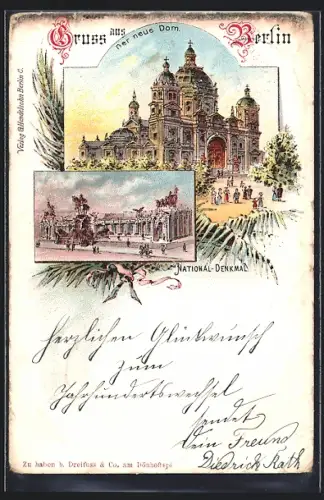 Gruss aus Berlin
Der neue Dom.
NATIONAL-DENKMAL
Herzlichen Glückwunsch
zum
Jahrhundertswechsel
sendet
Dein Freund
Diedrich Rath
Zu haben b. Dreifuss & Co. am Dönhoffspl